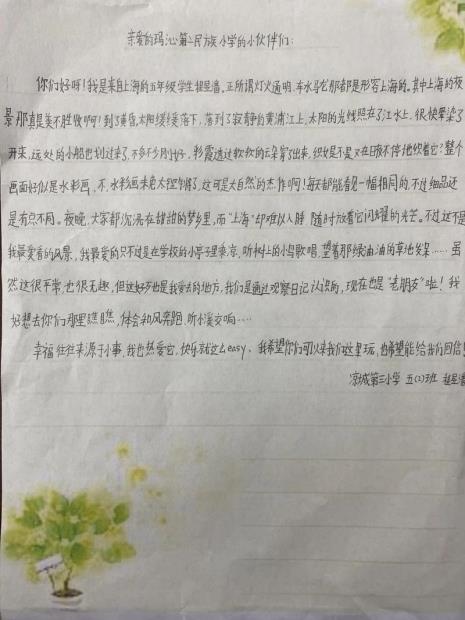 亲爱的玛沁第二民族小学的小伙伴们:
你们好呀!我是来自上海的五年级学生赵昱潽,正所谓灯火通明,车水马龙那都是形容上海的。其中上海的夜
景那真是美不胜收啊!到了黄昏,太阳缓缓落下,落到了寂静的黄浦江上,太阳的光线照在了江水上,很快晕染了
开来,远处的小船也划过来了,不多不少刚好,彩霞透过软软的云朵冒了出来,织女是不是又在日夜不停地织着它?整个
画面好似是水彩画,不,水彩画未免太拙劣了,这可是大自然的杰作啊!每天都能看见一幅相同的,不过细品还
是有点不同。夜晚,大家都沉浸在甜甜的梦乡里,而"上海"却难以入睡,随时放着它闪耀的光芒。不过这不是
我最爱看的风景,我最爱的只不过是在学校的小亭子里乘凉,听树上的小鸟歌唱,望着那绿油油的草地发呆……虽
然这很平常,也很无趣,但这好歹也是我爱去的地方,我们是通过观察日记认识的,现在也是"老朋友"啦!我
好想去你们那里瞧瞧,体会和风奔跑,听小溪交响……
幸福往往来源于小事,我也热爱它,快乐就这么easy、我希望你们可以来我们这里玩,也希望能给我们回信!
凉城第三小学 五(2)班 赵昱潽